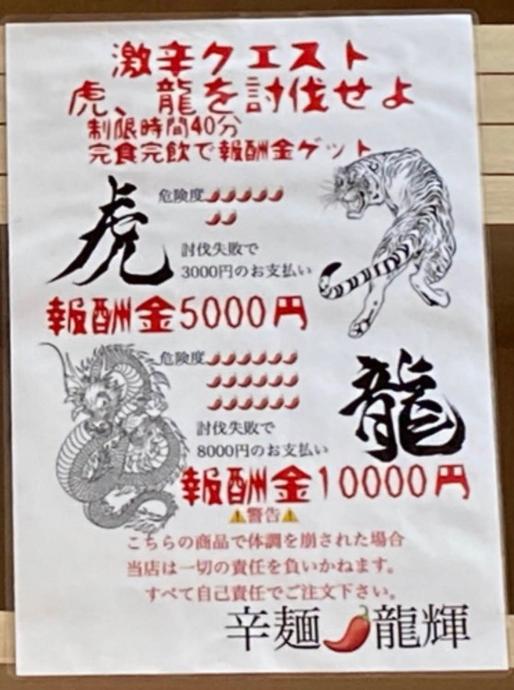 激辛クエスト
虎、龍を討伐せよ
制限時間40分
完食完飲で報酬金ゲット
虎
危険度🌶🌶🌶🌶🌶
🌶🌶
討伐失敗で
3000円のお支払い
報酬金5000円
危険度🌶🌶🌶🌶🌶
🌶🌶🌶🌶🌶
🌶🌶🌶🌶🌶
龍
討伐失敗で
8000円のお支払い
報酬金10000円
⚠警告⚠
こちらの商品で体調を崩された場合
当店は一切の責任を負いかねます。
すべて自己責任でご注文下さい。
辛麺🌶龍輝